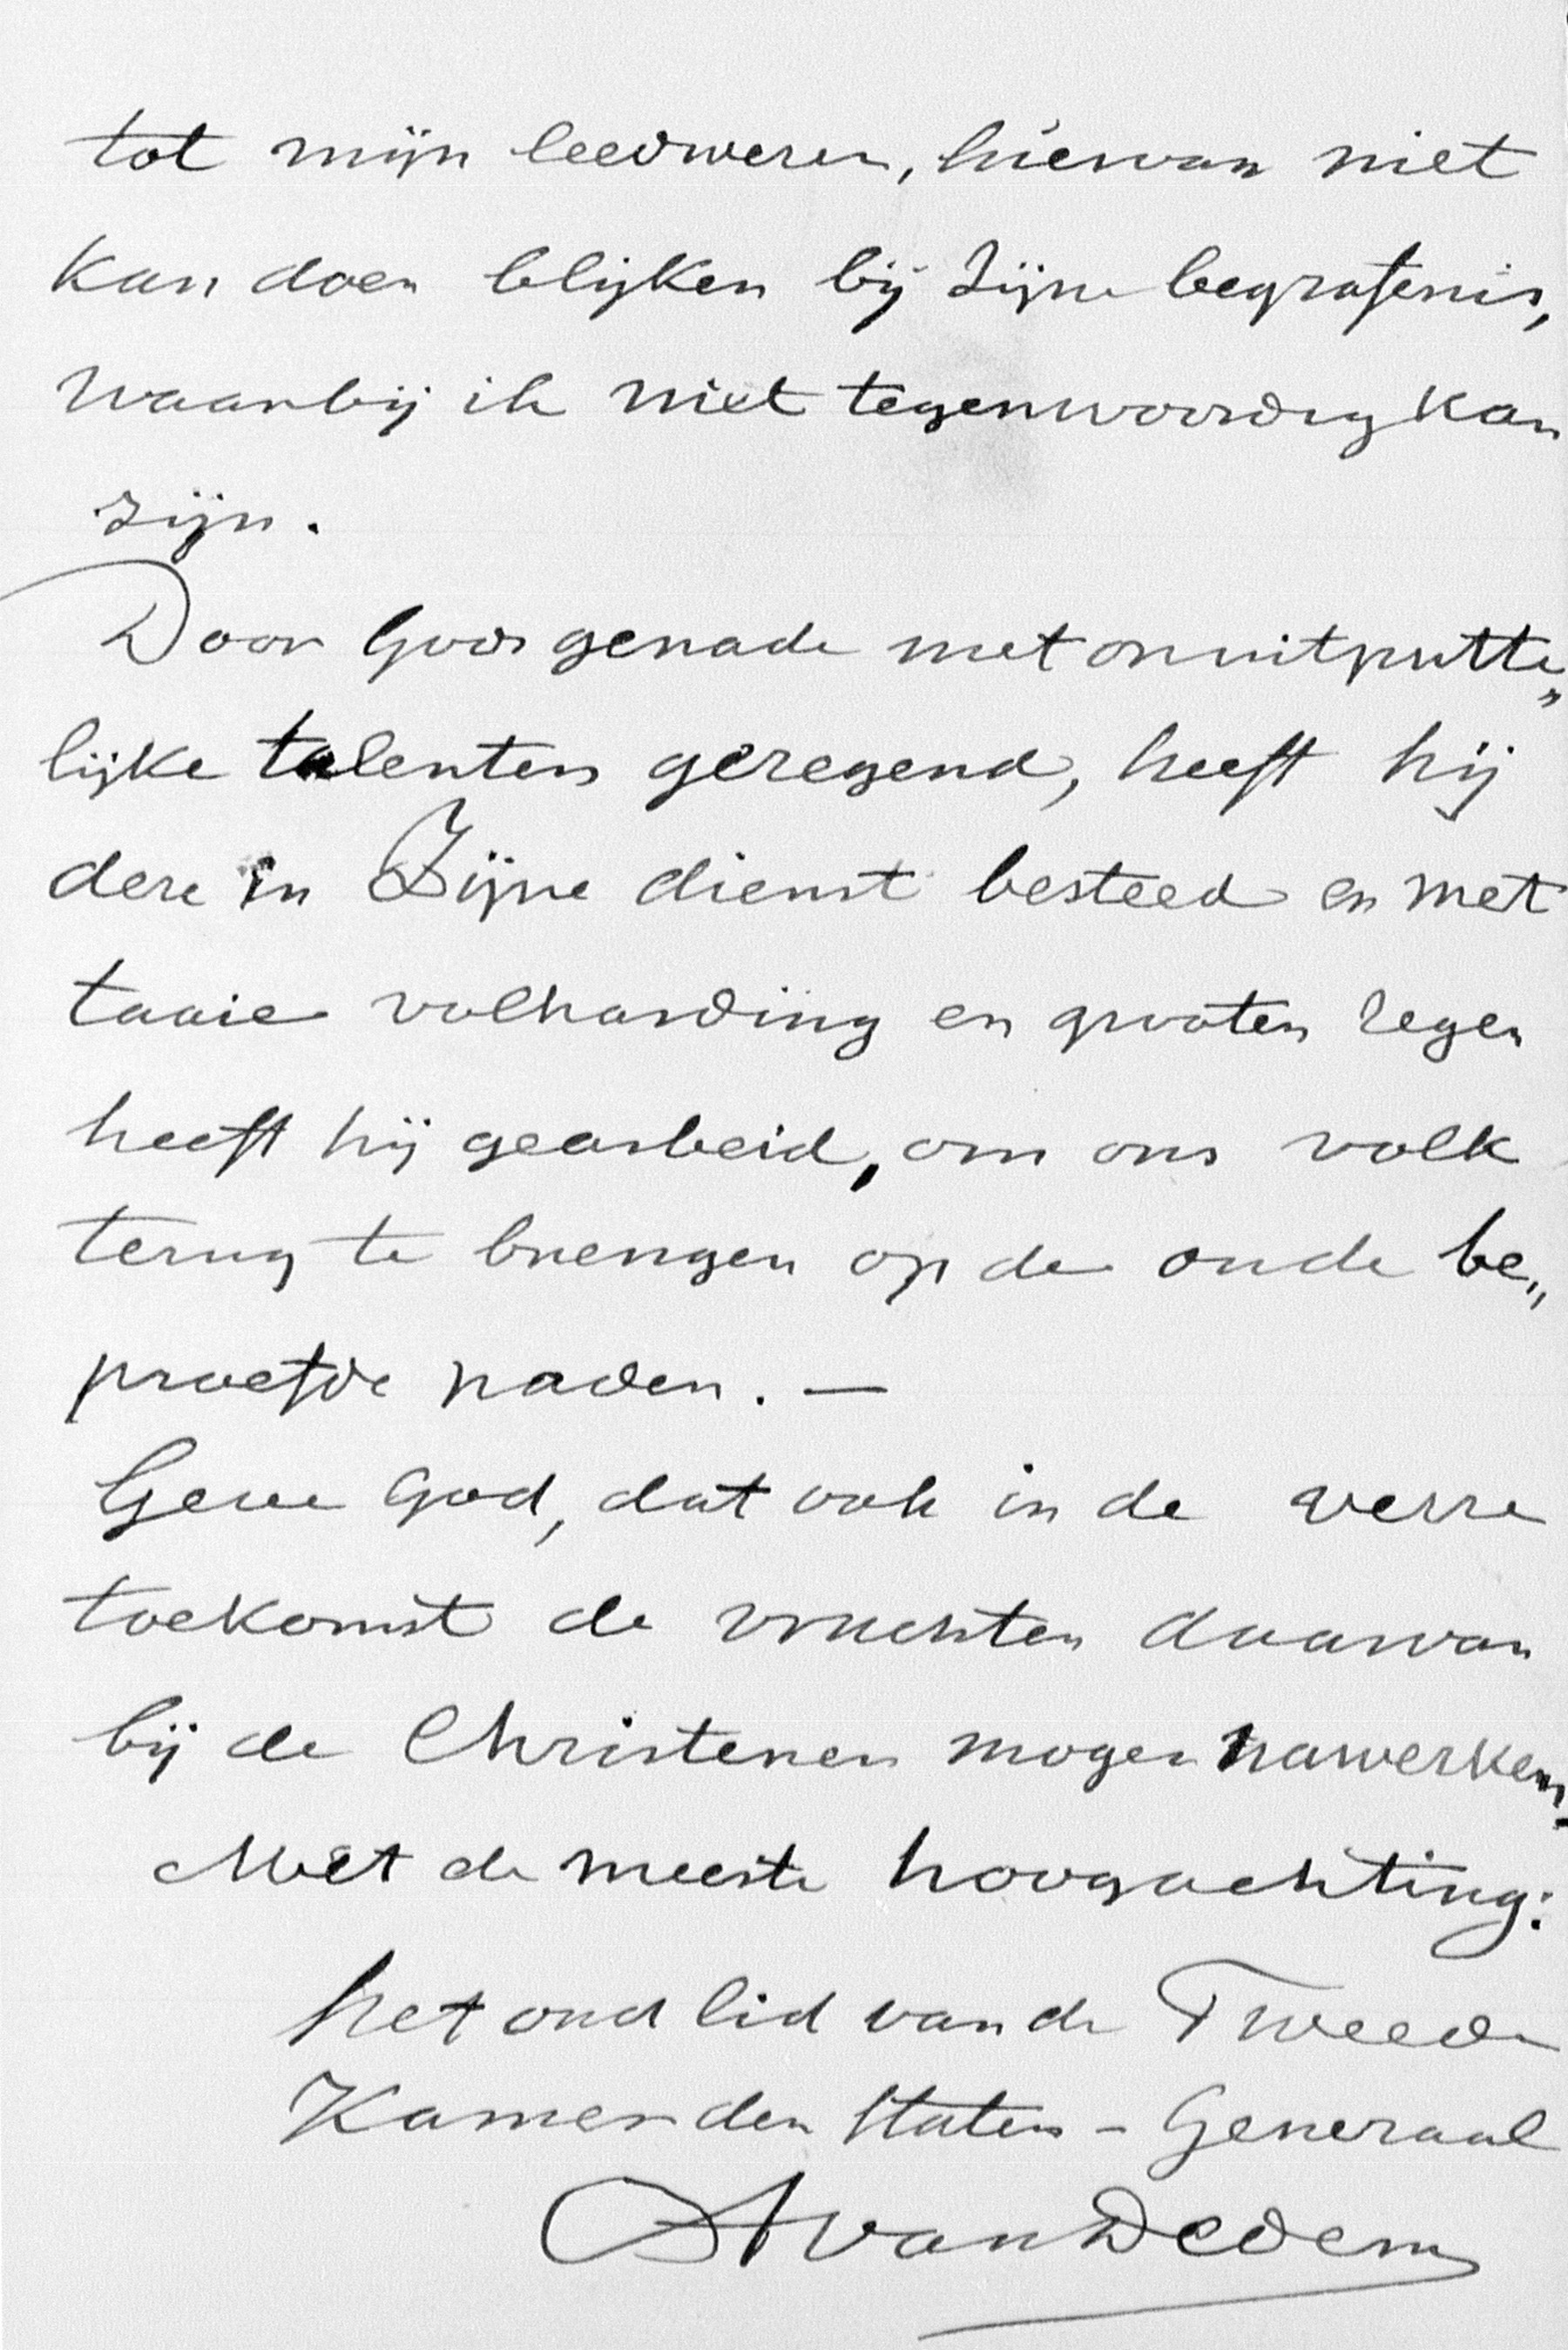 tot mijn leedwezen, hiervan niet
kan doen blijken bij zijne begrafenis,
waarbij ik niet tegenwoordig kan
zijn.
Door Gods genade met onuitputte„
lijke talenten gezegend, heeft hij
deze in Zijne dienst besteed en met
taaie volharding en grooten zegen
heeft hij gearbeid, om ons volk
terug te brengen op de oude be„
proefde paden. —
Geve God, dat ook in de verre
toekomst de vruchten daarvan
bij de Christenen mogen nawerken.
Met de meeste hoogachting:
het oud lid van de Tweede
Kamer der Staten-Generaal
A van Dedem